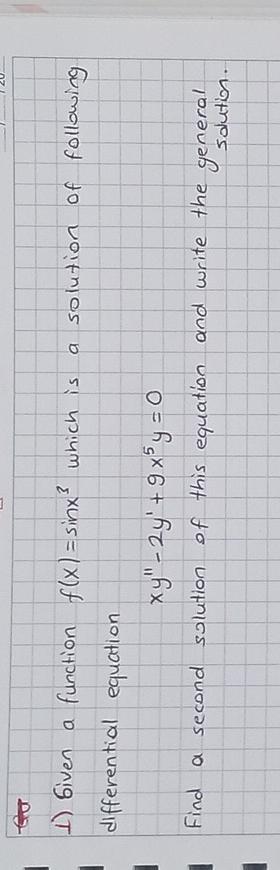 1) Given a function f(x)=sinx³ which is a solution of following
differential equation
xy'' - 2y' + 9x⁵y = 0
Find a second solution of this equation and write the general
solution.